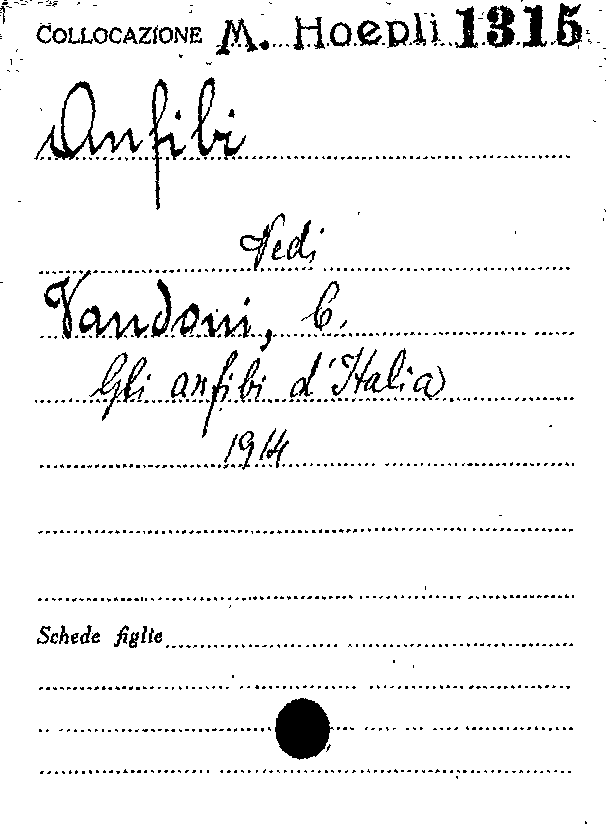 COLLOCAZIONE M. Hoepli 1315
Anfibi
Vedi
Vandoni, C.
Gli anfibi d'Italia
1914
Schede figlie